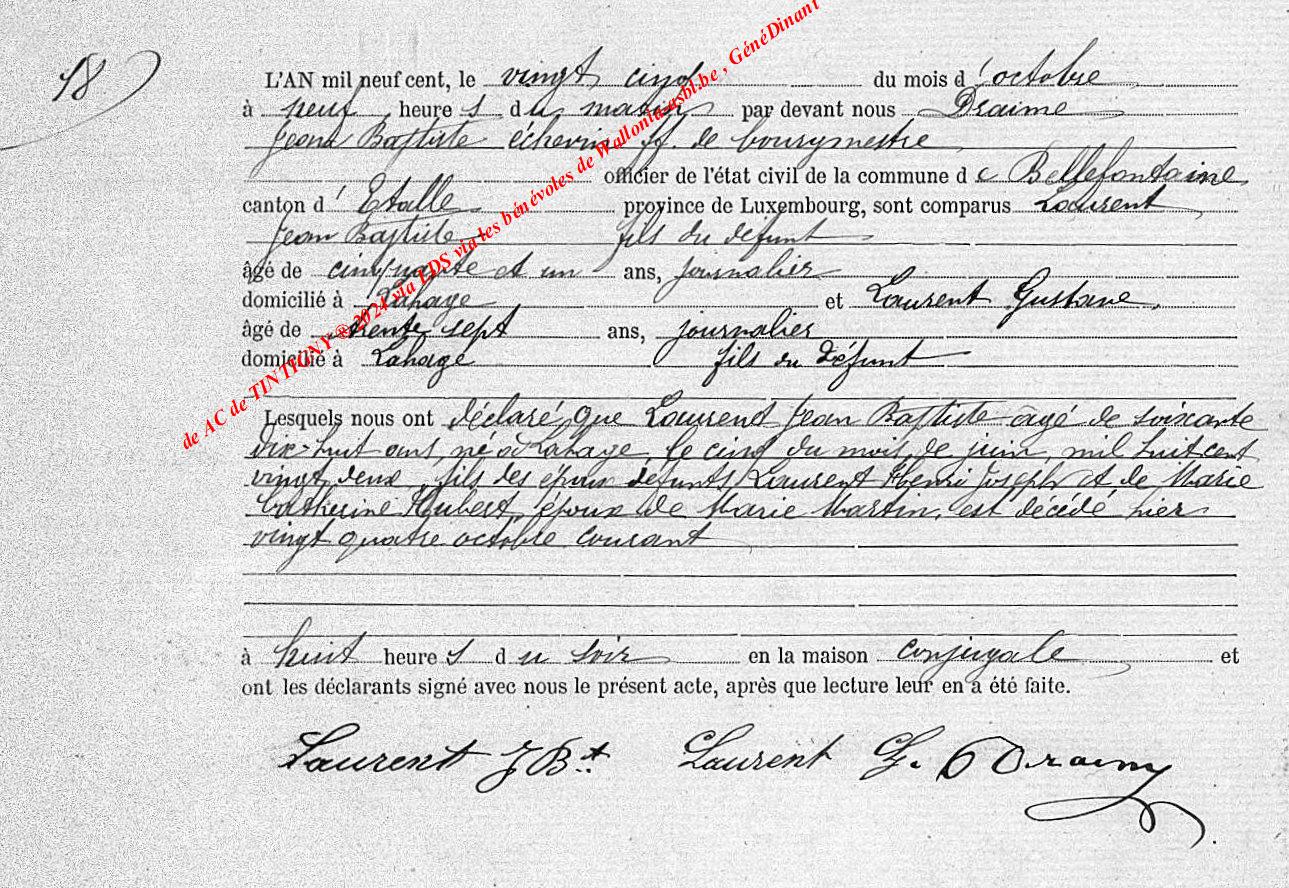 18
L'AN mil neuf cent, le vingt cinq du mois d'octobre
à neuf heures du matin par devant nous Draime
Jean Baptiste échevin ff. de bourgmestre
officier de l'état civil de la commune de Bellefontaine
canton d'Etalle province de Luxembourg, sont comparus Laurent
Jean Baptiste fils du défunt
âgé de cinquante et un ans, journalier
domicilié à Lahage et Laurent Gustave,
âgé de trente sept ans, journalier
domicilié à Lahage fils du défunt
Lesquels nous ont déclaré que Laurent Jean Baptiste âgé de soixante
dix-huit ans, né à Lahage, le cinq du mois de juin, mil huit cent
vingt deux, fils des époux défunts Laurent Henri Joseph et de Marie
Catherine Hubert, époux de Marie Martin, est décédé hier
vingt quatre octobre courant
à huit heures du soir en la maison conjugale et
ont les déclarants signé avec nous le présent acte, après que lecture leur en a été faite.
Laurent J Bt. Laurent G.
de AC de TINTIGNY ® 2024 via LDS via les bénévoles de Wallonia asbl.be , GénéDinant